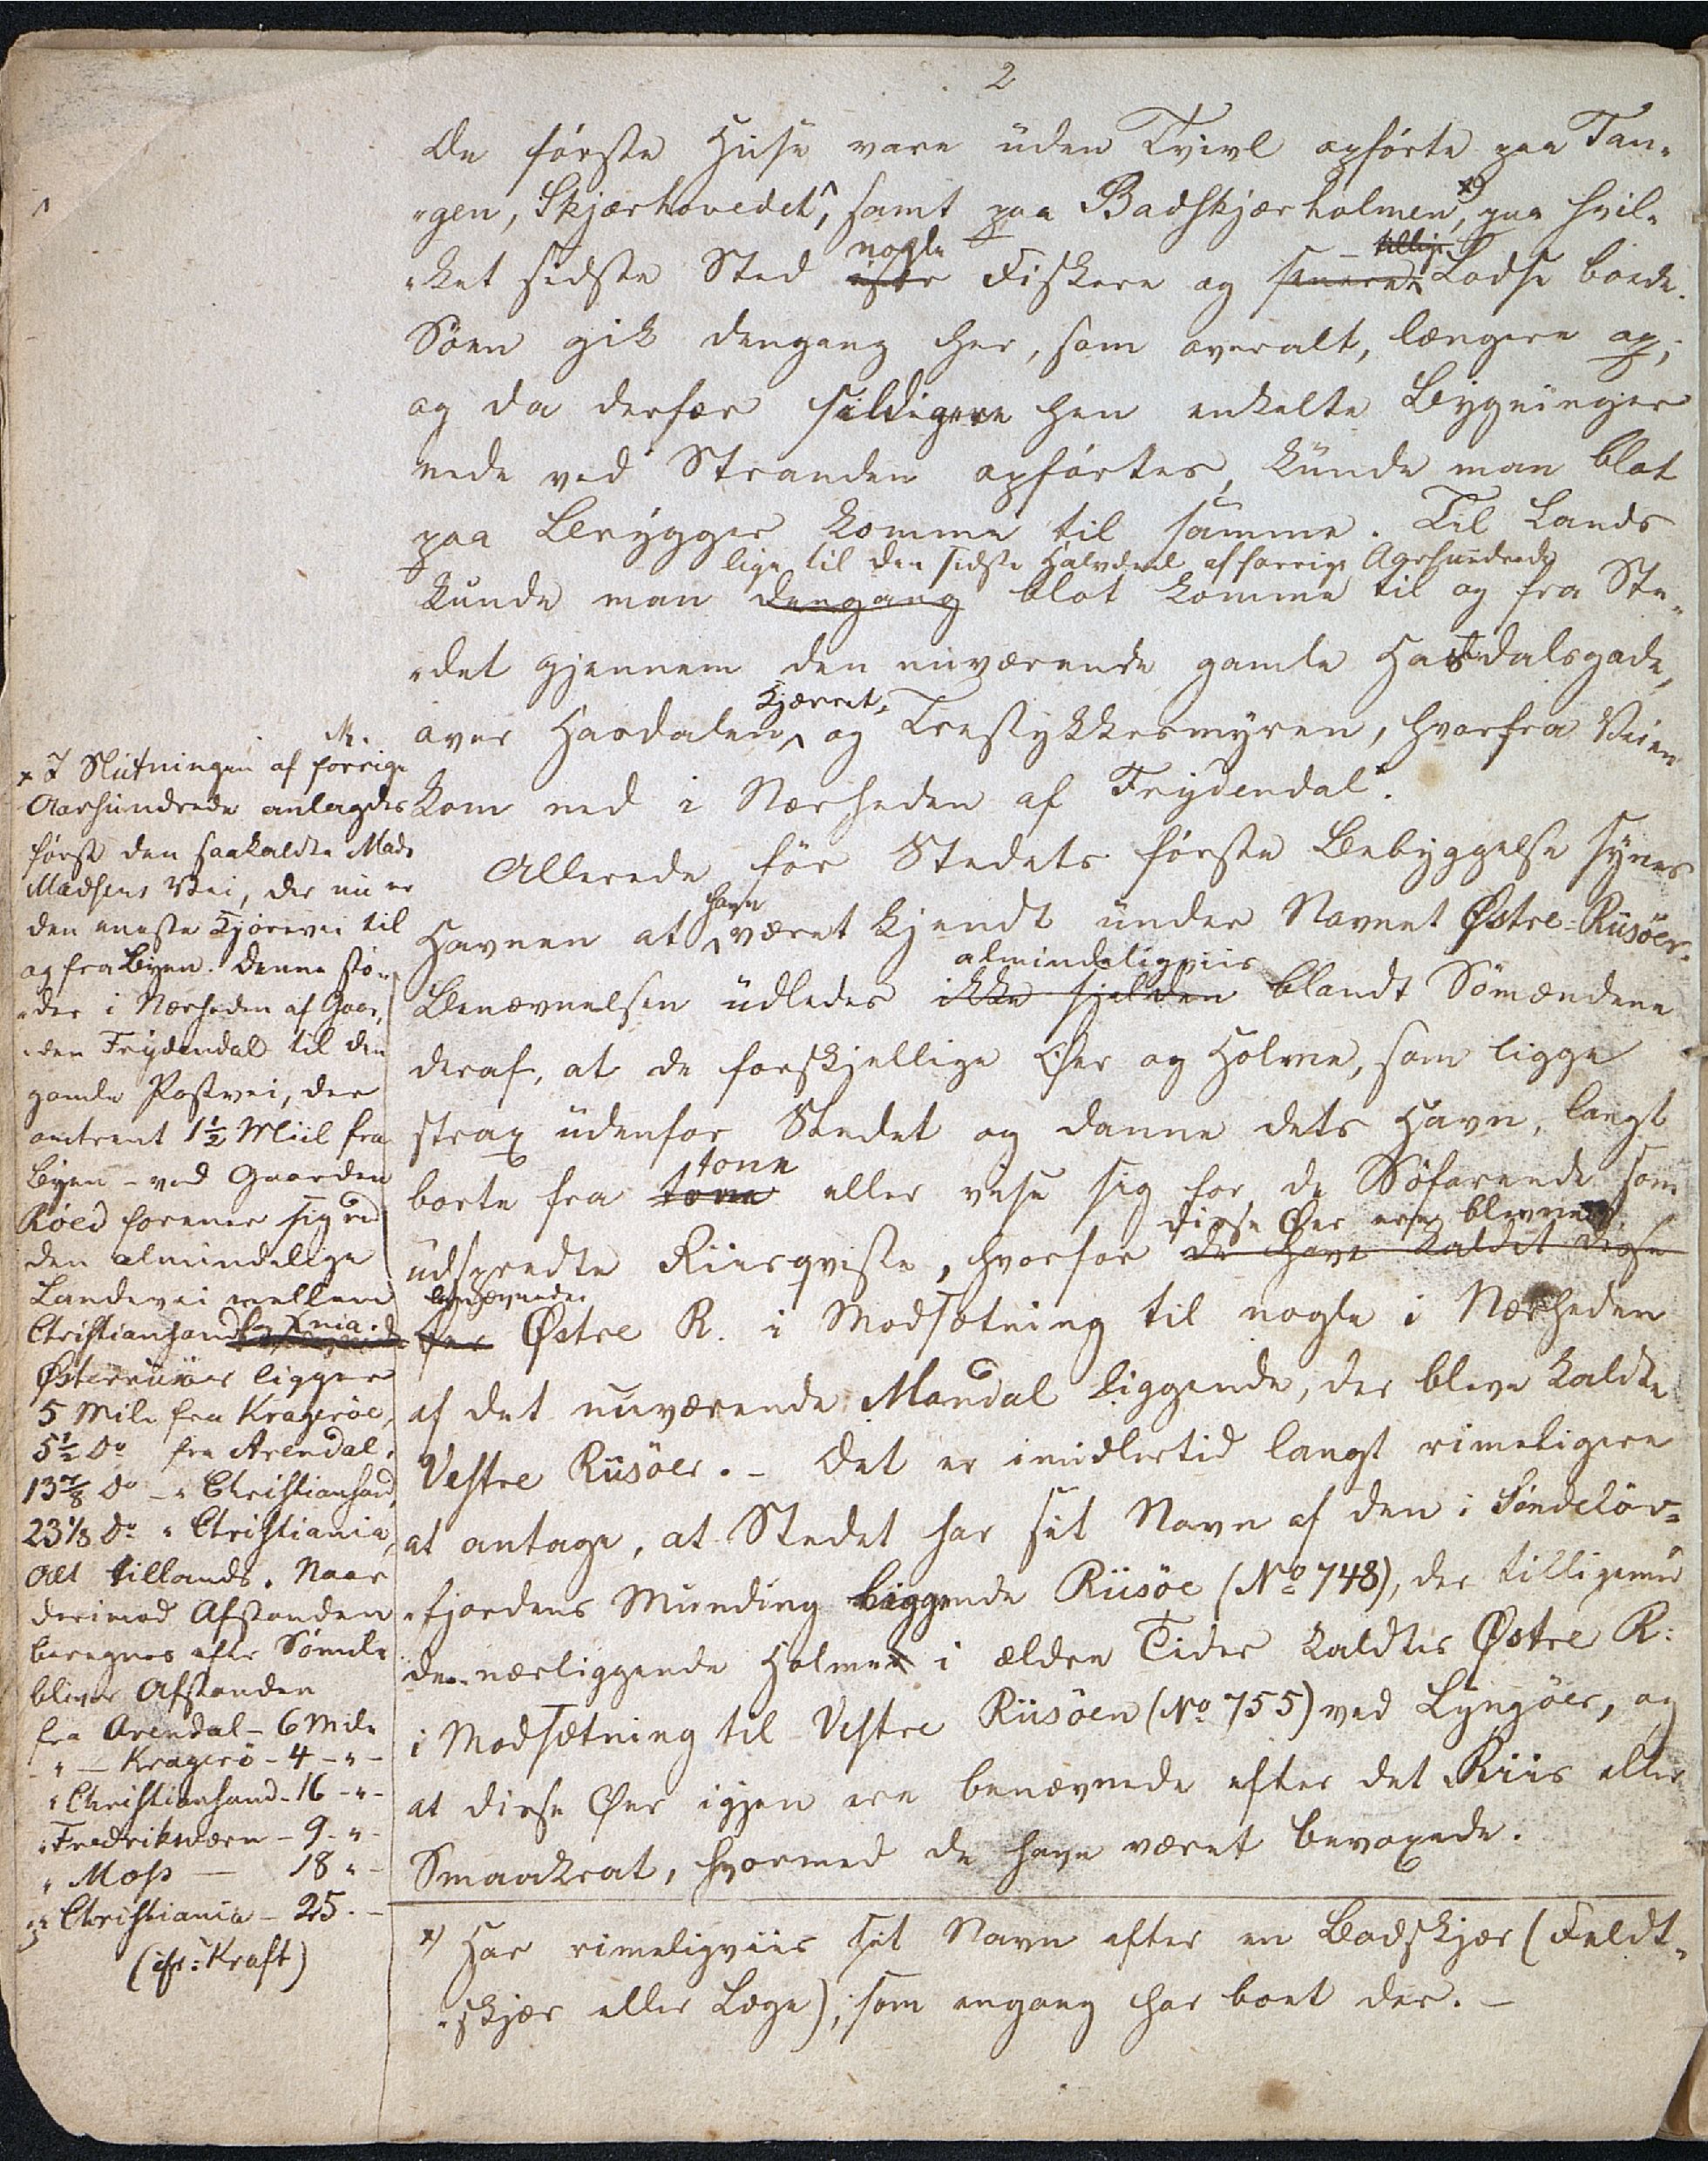 2
De første Huse vare uden Tvivl opførte paa Tan-
-gen, Skjærhovedet, samt paa Badskjærholmen, x) paa hvil-
nogle tillige
-ket sidste Sted Fiskere og senere Lodse boede.
Søen gik dengang her, som overalt, længere op,
og da derfor sildigere hen enkelte Bygninger
nede ved Stranden opførtes, kunde man blot
paa Brygger komme til samme. Til Lands
lige til den sidste Halvdeel af forrige Aarhundrede
kunde man dengang blot komme til og fra Ste-
-det gjennem den nuværende gamle Hasdalsgade,
Kjærret,
over Hasdalen, og Trestykkesmyren, hvorfra Veien
kom ned i Nærheden af Frydendal.x
Allerede før Stedets første Bebyggelse synes
have
Havnen at været kjendt under Navnet Østre-Riisöer.
almindeligviis
Benævnelsen udledes ikke sjelden blandt Sömændene
deraf, at de forskjellige Øer og Holme, som ligge
strax udenfor Stedet og danne dets Havn, langt
tone
borte fra tone eller vise sig for de Söfarende som
disse Øer ere blevne
udspredte Riisqviste, hvorfor de have kaldet disse
benævnede
Øer Østre R. i Modsætning til nogle i Nærheden
af det nuværende Mandal liggende, der bleve kaldte
Vestre Riisöer. – Det er imidlertid langt rimeligere
at antage, at Stedet har sit Navn af den i Söndelöv-
-fjordens Munding liggende Riisöe (No 748), der tilligemed
de nærliggende Holme i ældre Tider kaldtes Østre R:
i Modsætning til Vestre Riisöen (No 755) ved Lyngöer, og
at disse Øer igjen ere benævnede efter det Riis eller
Smaakrat, hvormed de have været bevoxede.
x) Har rimeligviis sit Navn efter en Badskjær (Feldt-
-skjær eller Læge), som engang har boet der. –
x I Slutningen af forrige
Aarhundrede anlagdes
först den saakaldte Mads
Madsens Vei, der nu er
den eneste Kjörevei til
og fra Byen. Denne stö-
-der i Nærheden af Gaar-
-den Frydendal til den
gamle Postvei, der
omtrent 1½ Miil fra
Byen – ved Gaarden
Röed forener sig med
den almindelige
Landevei mellem
Christiansand og Xnia.
Østerriisöer ligger
5 Mile fra Kragerøe,
5½ Do fra Arendal,
13⅞ Do – " Christiansand,
23⅛ Do " Christiania,
Alt tillands. Naar
derimod Afstanden
beregnes efter Sömile
bliver Afstanden
fra Arendal – 6 Mile
" – Kragerö – 4 – " –
" Christiansand – 16 – " –
" Fredriksværn – 9 – " –
" Moss – 18 " –
" Christiania – 25 . –
(cfr: Kraft)